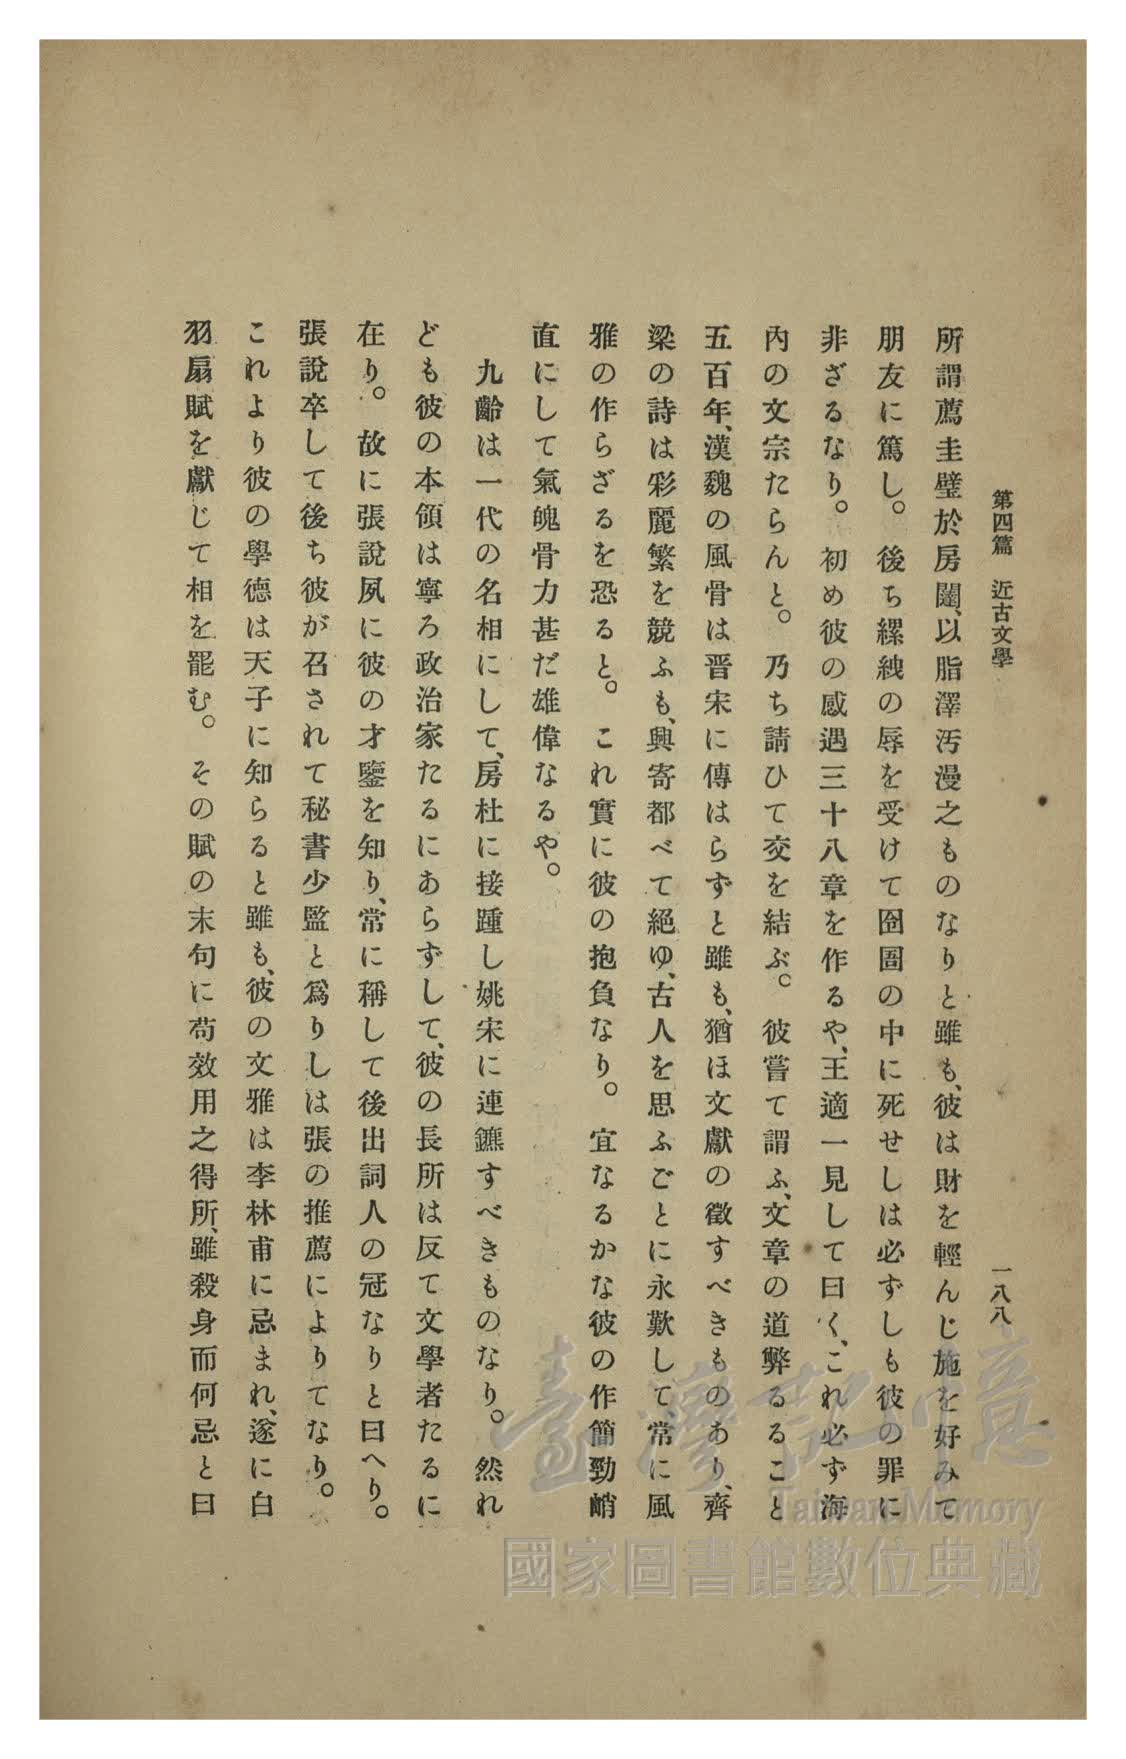 第四篇　近古文學
一八八
所謂薦圭璧於房闥、以脂澤汚漫之ものなりと雖も、彼は財を輕んじ施を好みて
朋友に篤し。後ち縲絏の辱を受けて囹圄の中に死せしは必ずしも彼の罪に
非ざるなり。初め彼の感遇三十八章を作るや、王適一見して曰く、これ必ず海
內の文宗たらんと。乃ち請ひて交を結ぶ。彼嘗て謂ふ、文章の道弊るること
五百年、漢魏の風骨は晋宋に傳はらずと雖も、猶ほ文獻の徵すべきものあり、齊
梁の詩は彩麗繁を競ふも、興寄都べて絕ゆ、古人を思ふごとに永歎して常に風
雅の作らざるを恐ると。これ實に彼の抱負なり。宜なるかな彼の作簡勁峭
直にして氣魄骨力甚だ雄偉なるや。
九齡は一代の名相にして、房杜に接踵し姚宋に連鑣すべきものなり。然れ
ども彼の本領は寧ろ政治家たるにあらずして、彼の長所は反て文學者たるに
在り。故に張說夙に彼の才鑒を知り、常に稱して後出詞人の冠なりと曰へり。
張說卒して後ち彼が召されて秘書少監と爲りしは張の推薦によりてなり。
これより彼の學德は天子に知らると雖も、彼の文雅は李林甫に忌まれ、遂に白
羽扇賦を獻じて相を罷む。その賦の末句に苟效用之得所、雖殺身而何忌と曰
臺灣記憶
Taiwan Memory
國家圖書館數位典藏